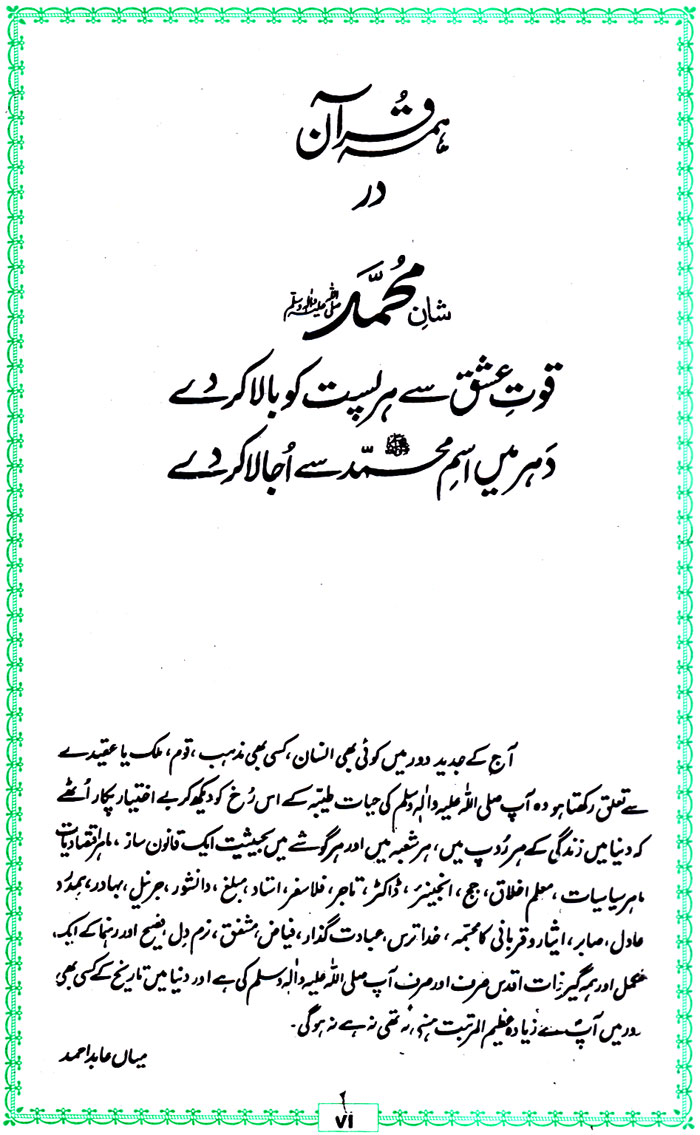 ہمہ قرآن
در
شانِ مُحمَّد صلی اللہ علیہ وآلہ وسلم
قوتِ عشق سے ہر پست کو بالا کر دے
دَہر میں اسمِ محمّد ﷺ سے اُجالا کر دے
آج کے جدید دور میں کوئی بھی انسان، کسی بھی مذہب، قوم، ملک یا عقیدے
سے تعلق رکھتا ہو وہ آپ صلی اللہ علیہ والہٖ وسلم کی حیات طیبّہ کے اس رُخ کو دیکھ کر بے اختیار پکار اُٹھے
کہ دنیا میں زندگی کے ہر رُوپ میں، ہر شعبہ میں اور ہر گوشے میں بحیثیت ایک قانون ساز، ماہر اقتصادیات
ماہر سیاسیات، معلم اخلاق، جج، انجینئر، ڈاکٹر، تاجر، فلاسفر، استاد، مبلغ، دانشور، جرنیل، بہادر، ہمدرد
عادل، صابر، ایثار و قربانی کا مجسمہ، خدا ترس، عبادت گذار، فیاض، مشفق، نرم دل، فصیح اور رہنما کے ایک
مکمل اور ہمہ گیر ذات اقدس صرف اور صرف آپ صلی اللہ علیہ والہٖ وسلم کی ہے اور دنیا میں تاریخ کے کسی بھی
دور میں آپؐ سے زیادہ عظیم المرتبت ہستی نہ تھی نہ ہے نہ ہو گی۔
میاں عابد احمد
٦
vi